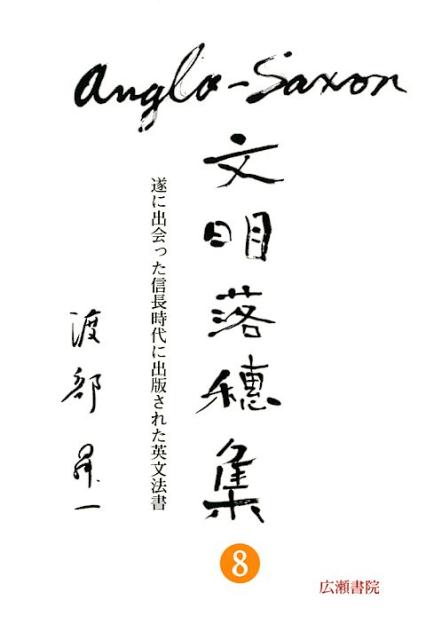 Anglo-Saxon
文明落穗集
遂に出会った信長時代に出版された英文法書
渡部昇一
8
広瀬書院